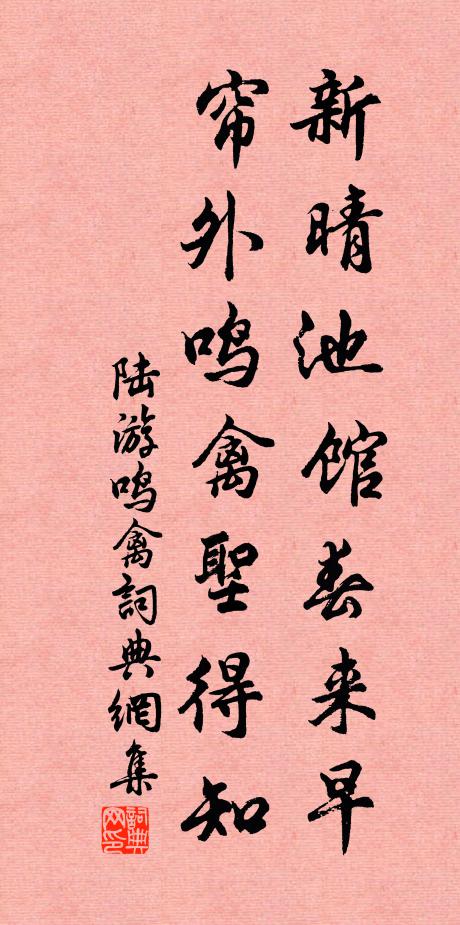 新晴池馆春来早
帘外鸣禽聖得知
陆游鸣禽詞典網集
詞典网印